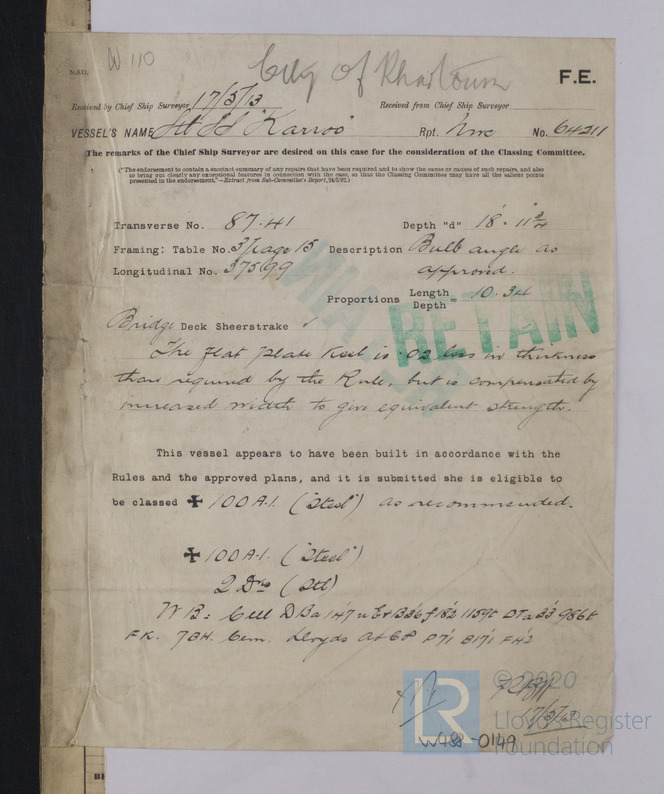 W 110
City of Khartoum
F.E.
Received by Chief Ship Surveyor 17/5/13 Received from Chief Ship Surveyor
VESSEL'S NAME St SS "Karroo" Rpt. Nwc No. 64211
The remarks of the Chief Ship Surveyor are desired on this case for the consideration of the Classing Committee.
("The endorsement to contain a succinct summary of any repairs that have been required and to show the cause or causes of such repairs, and also
to bring out clearly any exceptional features in connection with the case, so that the Classing Committee may have all the salient points
presented in the endorsement."—Extract from Sub-Committee's Report,
Transverse No. 87.41 Depth "d" 18.11 3/4
Framing: Table No. 3/page 15 Description Bulb angle as
Longitudinal No. 37599 approved.
Proportions Length/Depth = 10.34
RETAIN
Bridge Deck Sheerstrake
The flat plate keel is .02 less in thickness
than required by the Rule, but is compensated by
increased width to give equivalent strength.
This vessel appears to have been built in accordance with the
Rules and the approved plans, and it is submitted she is eligible to
be classed ✠ 100A.1. ("Steel") as recommended.
✠ 100A.1. ("Steel")
2 Dks (Stl)
WB = Cell DBa 147' u E&B 36' f 182' 1159t DTa 33' 986t
FK. 7BH. Cem. Lloyds A&CP P71 B171 F42
© 2020
LR
Lloyd's Register
Foundation
W488-0149